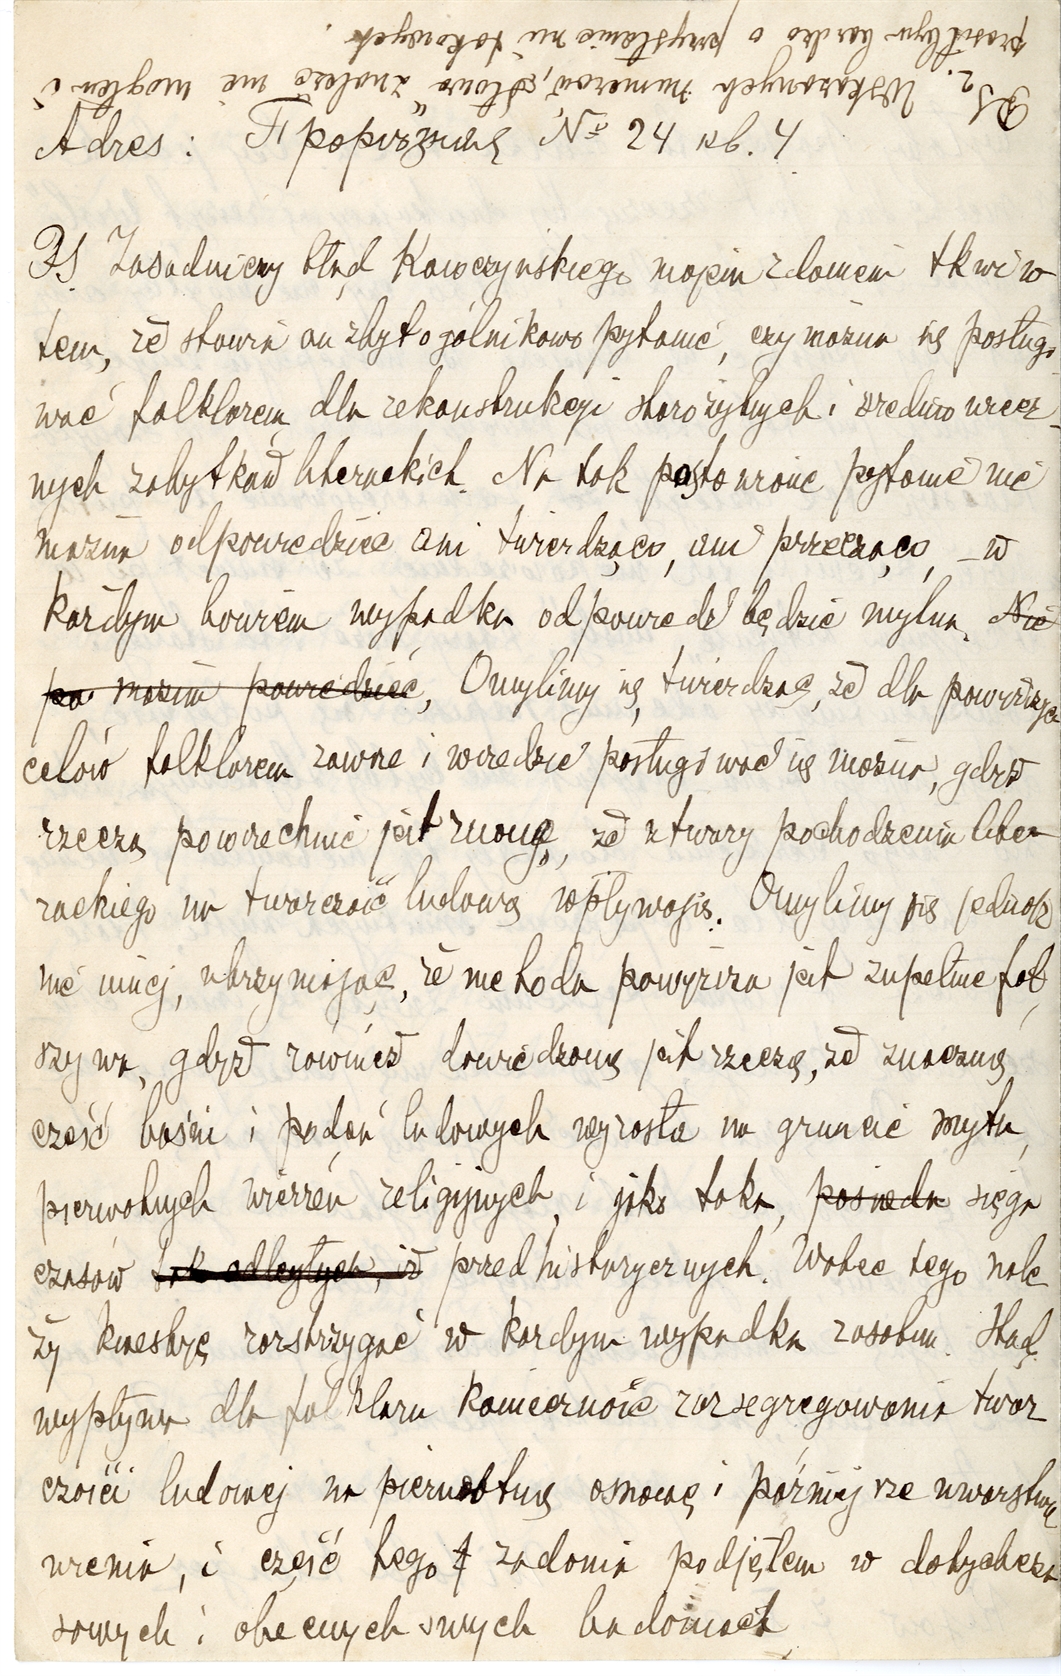 PS₂. Wskazanych numerów „Słowa” znaleść nie mogłem i
prosiłbym bardzo o przysłanie mi takowych.
Adres: № 24 кв. 4
PS. Zasadniczy błąd Kawczyńskiego mojem zdaniem tkwi w
tem, że stawia on zbyt ogólnikowo pytanie, czy można się posługi
wać folklorem dla rekonstrukcji starożytnych i średniowiecz-
nych zabytków literackich. Na tak postawione pytanie nie
można odpowiedzieć ani twierdząco, ani przecząco, – w
każdym bowiem wypadku odpowiedź będzie mylna. ~~Nie~~
~~po można powiedzieć,~~ Omylimy się, twierdząc, że dla powyższych
celów folklorem zawsze i wszędzie posługiwać się można, gdyż
rzeczą powszechnie jest znaną, że utwory pochodzenia lite-
rackiego na twórczość ludową wpływają. Omylimy się jednak
nie mniej, utrzymując, że metoda powyższa jest zupełnie fał-
szywa, gdyż również dowiedzioną jest rzeczą, że znaczna
część baśni i podań ludowych wyrosła na gruncie mytu,
pierwotnych wierzeń religijnych, i jako taka, ~~posiada~~ sięga
czasów ~~tak odległych, iż~~ przedhistorycznych. Wobec tego nale
ży kwestyę rozstrzygać w każdym wypadku zosobna. Stąd
wypływa dla folkloru konieczność rozsegregowania twór
czości ludowej na pierwotną osnowę i późniejsze uwarstwo
wienia, i część tego zadania podjąłem w dotychcza
sowych i obecnych swych badaniach